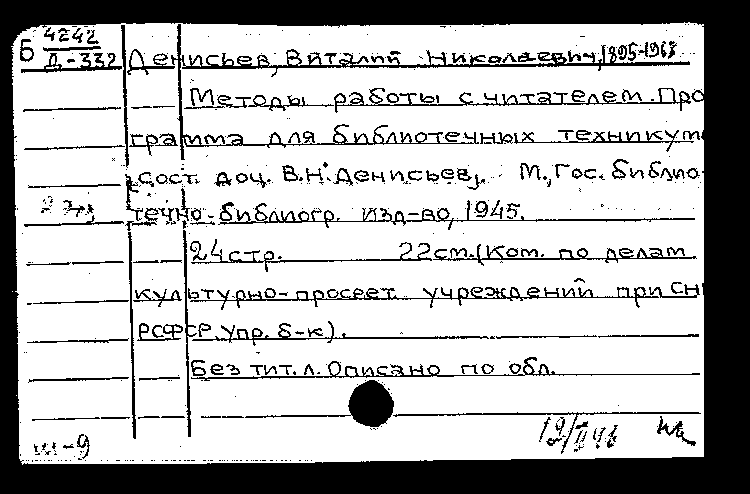 Б 4242
Д-332
Денисьев, Виталий Николаевич, 1895-1963
Методы работы с читателем. Про
грамма для библиотечных техникум
[Сост. доц. В.Н. Денисьев]. М., Гос. библио-
2 экз
течно-библиогр. изд-во, 1945.
24 стр. 22 см. (Ком. по делам
культурно-просвет. учреждений при СН
РСФСР. Упр. б-к).
Без тит. л. Описано по обл.
ш-9